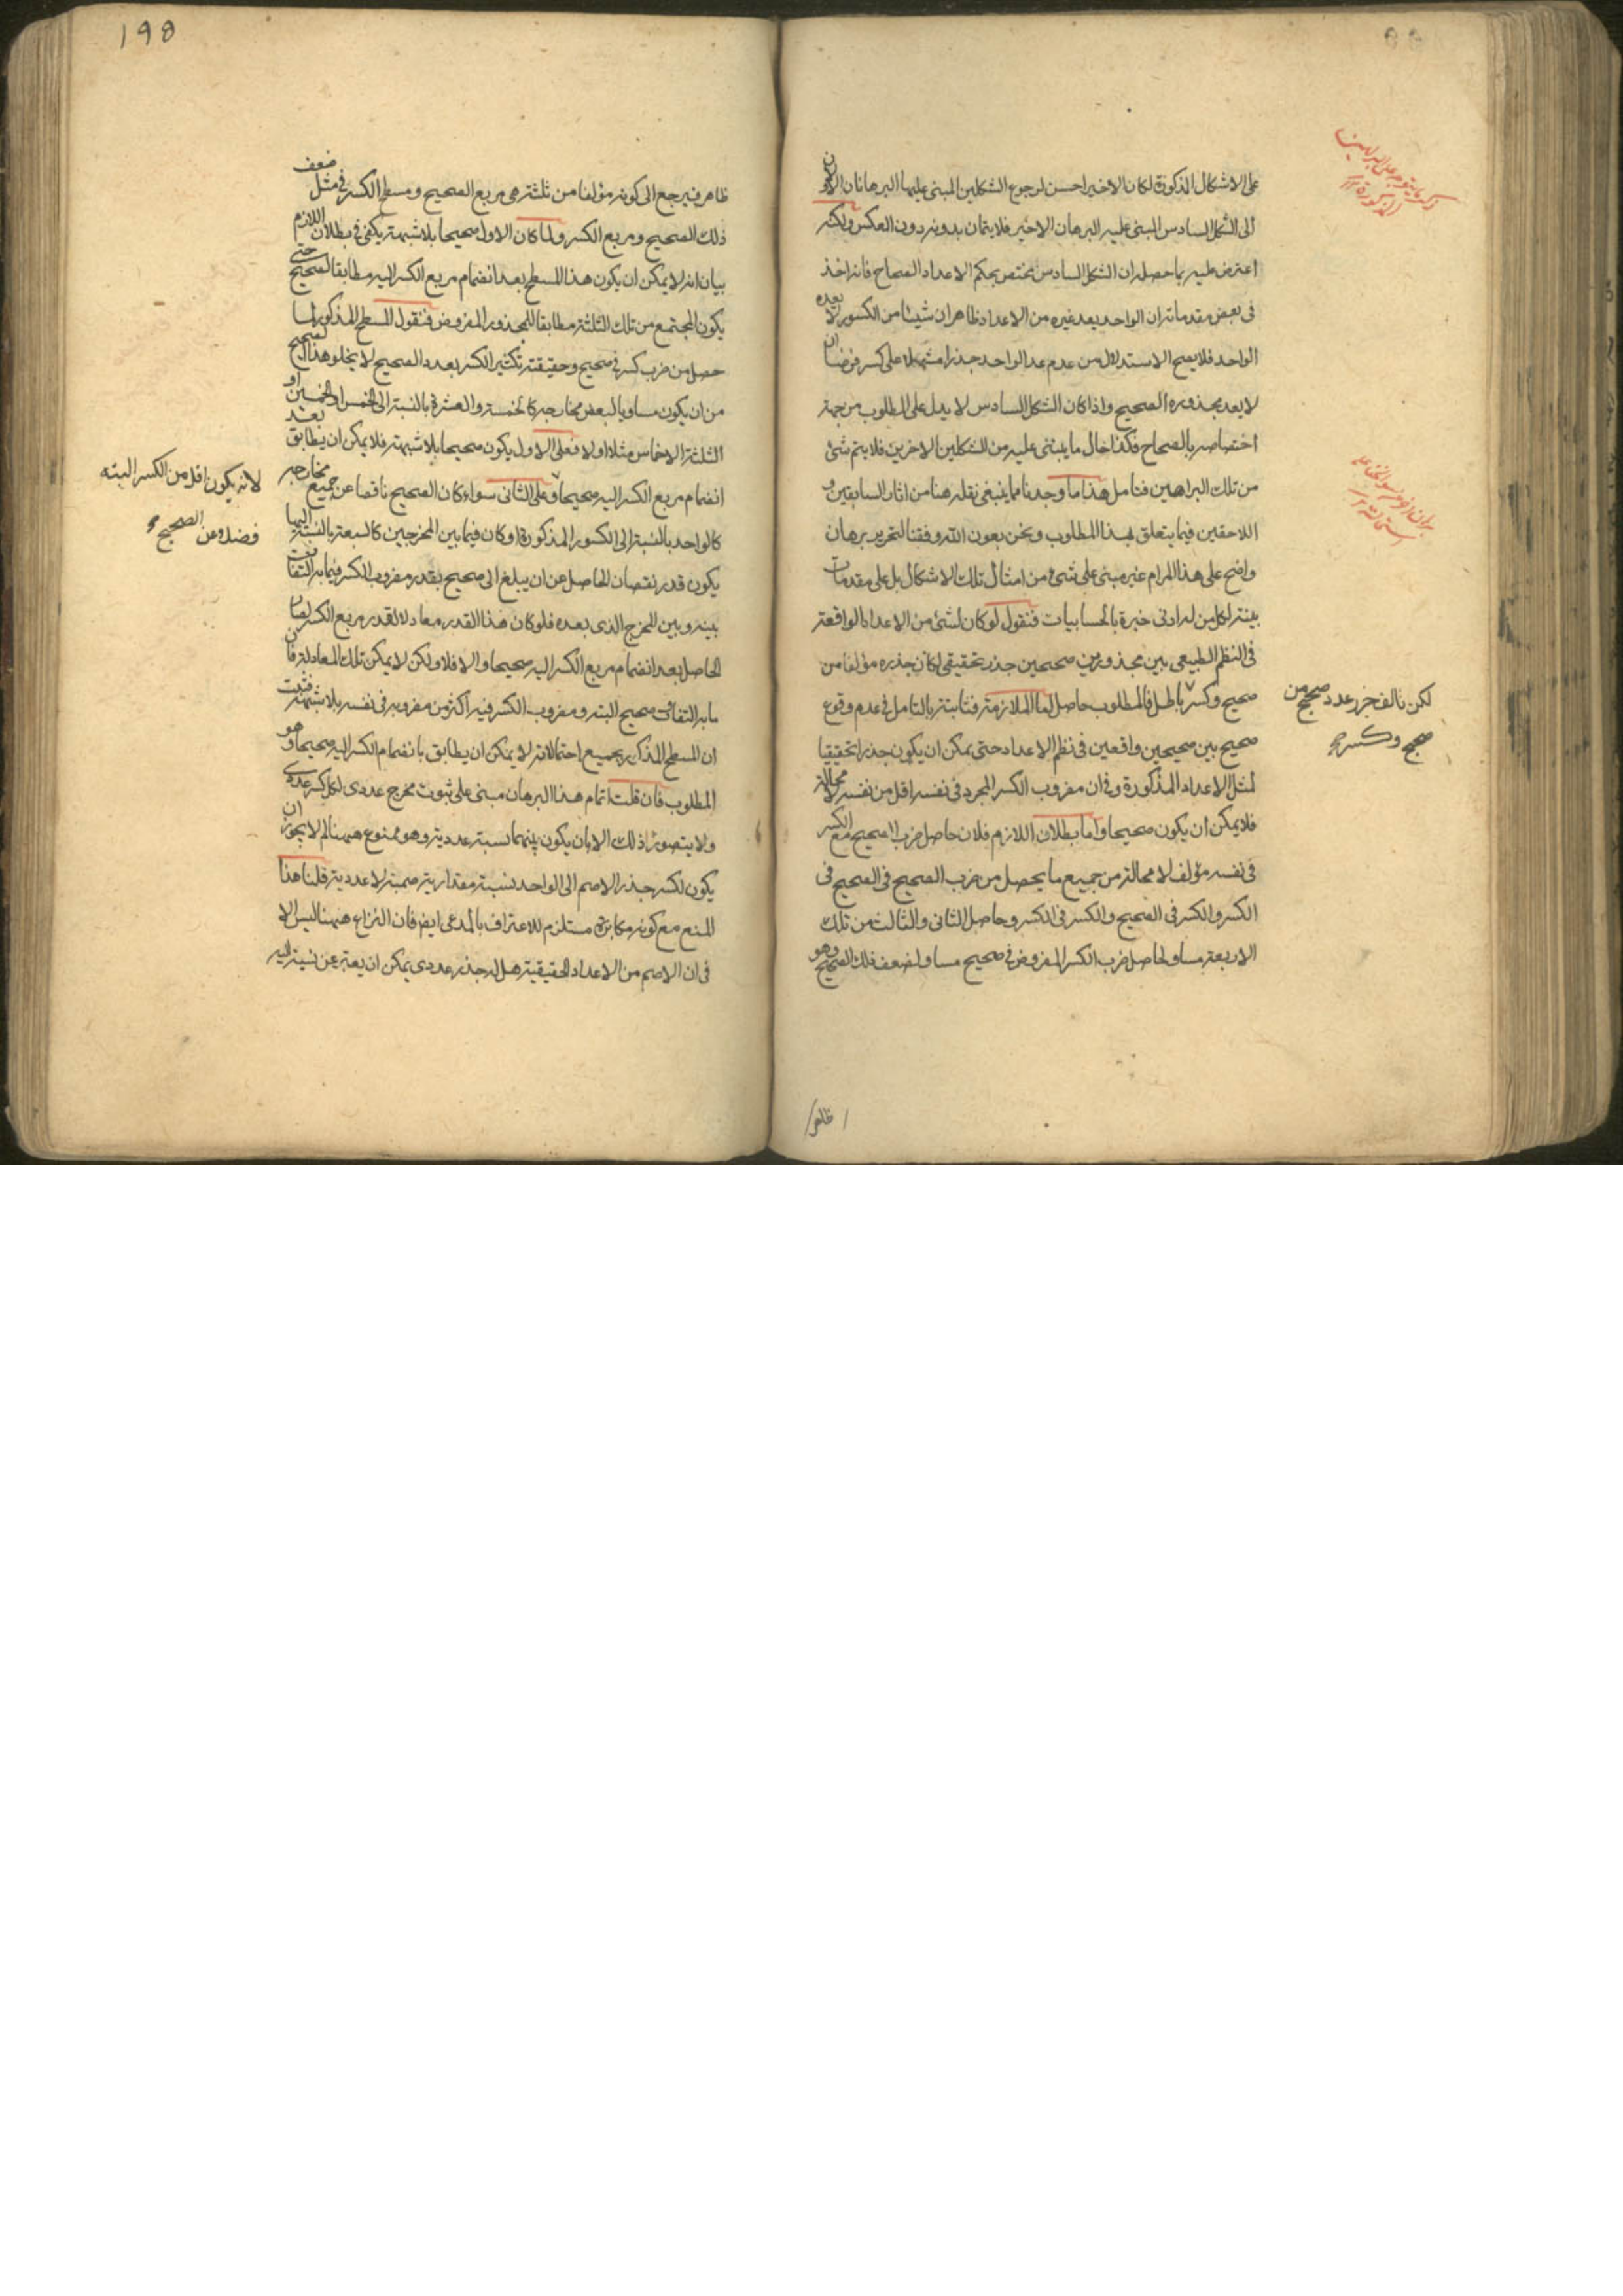 على الاشكال المذكورة لكان الاخير احسن لرجوع الشكلين المبنى عليهما البرهانان الاولان
الى الشكل السادس المبنى عليه البرهان الاخير فلا يتمان بدونه دون العكس ولكنه
اعترض عليه بما حصله ان الشكل السادس مختص بحكم الاعداد الصحاح فانه اخذ
فى بعض مقدماته ان الواحد يعد غيره من الاعداد وظاهر ان شيئا من الكسور لا يعده
الواحد فلا يصح الاستدلال من عدم عد الواحد جذرا مشتملا على كسر فرضا ان
لا يعد مجذوره الصحيح واذا كان الشكل السادس لا يدل على المطلوب من جهة
اختصاصه بالصحاح فكذا حال ما يبتنى عليه من الشكلين الاخرين فلا يتم شئ
من تلك البراهين فتامل هذا ما وجدنا مما ينبغى نقله هنا من اثار السابقين و
اللاحقين فيما يتعلق بهذا المطلوب ونحن بعون الله وفقنا لتحرير برهان
واضح على هذا المرام غير مبنى على شئ من امثال تلك الاشكال بل على مقدمات
بينة لكل من له ادنى خبرة بالحسابيات فنقول لو كان لشئ من الاعداد الواقعة
فى النظم الطبيعى بين مجذورين صحيحين جذر تحقيقى لكان جذره مؤلفا من
صحيح وكسر باطل فالمطلوب حاصل اما الملازمة فثابتة بالتامل فى عدم وقوع
صحيح بين صحيحين واقعين فى نظم الاعداد حتى يمكن ان يكون جذرا تحقيقيا
لمثل الاعداد المذكورة وفى ان مضروب الكسر المجرد فى نفسه اقل من نفسه لا محالة
فلا يمكن ان يكون صحيحا واما بطلان اللازم فلان حاصل ضرب الصحيح مع الكسر
فى نفسه مؤلف لا محالة من جميع ما يحصل من ضرب الصحيح فى الصحيح فى
الكسر والكسر فى الصحيح والكسر فى الكسر وحاصل الثانى والثالث من تلك
الاربعة مساو لحاصل ضرب الكسر المفروض فى صحيح مساو لضعف ذلك الصحيح وهو
لكن تالف جزر عدد صحيح من
صحيح وكسر
ظاهر
198
ظاهر فيرجع الى كونه مؤلفا من ثلثة هى مربع الصحيح ومسطح الكسر فى مثل ضعف
ذلك الصحيح ومربع الكسر ولما كان الاول صحيحا بلا شبهة يكفى فى بطلان اللازم
بيان انه لا يمكن ان يكون هذا المسطح بعد انضمام مربع الكسر اليه مطابقا لصحيح حتى
يكون المجتمع من تلك الثلثة مطابقا للمجذور المفروض فنقول المسطح المذكور لما
حصل من ضرب كسر فى صحيح وحقيقته تكثير الكسر بعدد الصحيح لا يخلو هذا الصحيح
من ان يكون مساويا لبعض مخارجه كالخمسة والعشرة بالنسبة الى الخمس او الخمسين او
الثلثة الاخماس مثلا او لا فعلى الاول يكون صحيحا بلا شبهة فلا يمكن ان يطابق بعد
انضمام مربع الكسر اليه صحيحا وعلى الثانى سواء كان الصحيح ناقصا عن جميع مخارجه
كالواحد بالنسبة الى الكسور المذكورة او كان فيما بين المخرجين كالسبعة بالنسبة اليها
يكون قدر نقصان الحاصل عن ان يبلغ الى صحيح بقدر مضروب الكسر فيما به التفاوت
بينه وبين المخرج الذى بعده فلو كان هذا القدر معادلا لقدر مربع الكسر لكان
الحاصل بعد انضمام مربع الكسر اليه صحيحا والا فلا ولكن لا يمكن تلك المعادلة فان
ما به التفاوت صحيح البتة ومضروب الكسر فيه اكثر من مضروبه فى نفسه بلا شبهة فثبت
ان المسطح المذكور بجميع احتمالاته لا يمكن ان يطابق بانضمام الكسر اليه صحيحا وهو
المطلوب فان قلت اتمام هذا البرهان مبنى على ثبوت مخرج عددى لكل كسر عددى
ولا يتصور ذلك الا بان يكون بينهما نسبة عددية وهو ممنوع ههنا لم لا يجوز ان
يكون لكسر جذر الاصم الى الواحد نسبة مقدارية صمية لا عددية قلنا هذا
المنع مع كونه مكابرة مستلزم للاعتراف بالمدعى ايضا فان النزاع ههنا ليس الا
فى ان الاصم من الاعداد الحقيقية هل له جذر عددى يمكن ان يعبر عن نسبته اليه
لانه يكون اقل من الكسر البته
فضلا عن الصحيح